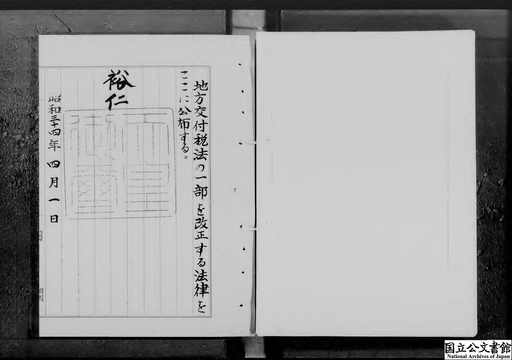 地方交付税法の一部を改正する法律を
ここに公布する。
裕仁
天皇
御璽
昭和三十四年四月一日
国立公文書館
National Archives of Japan